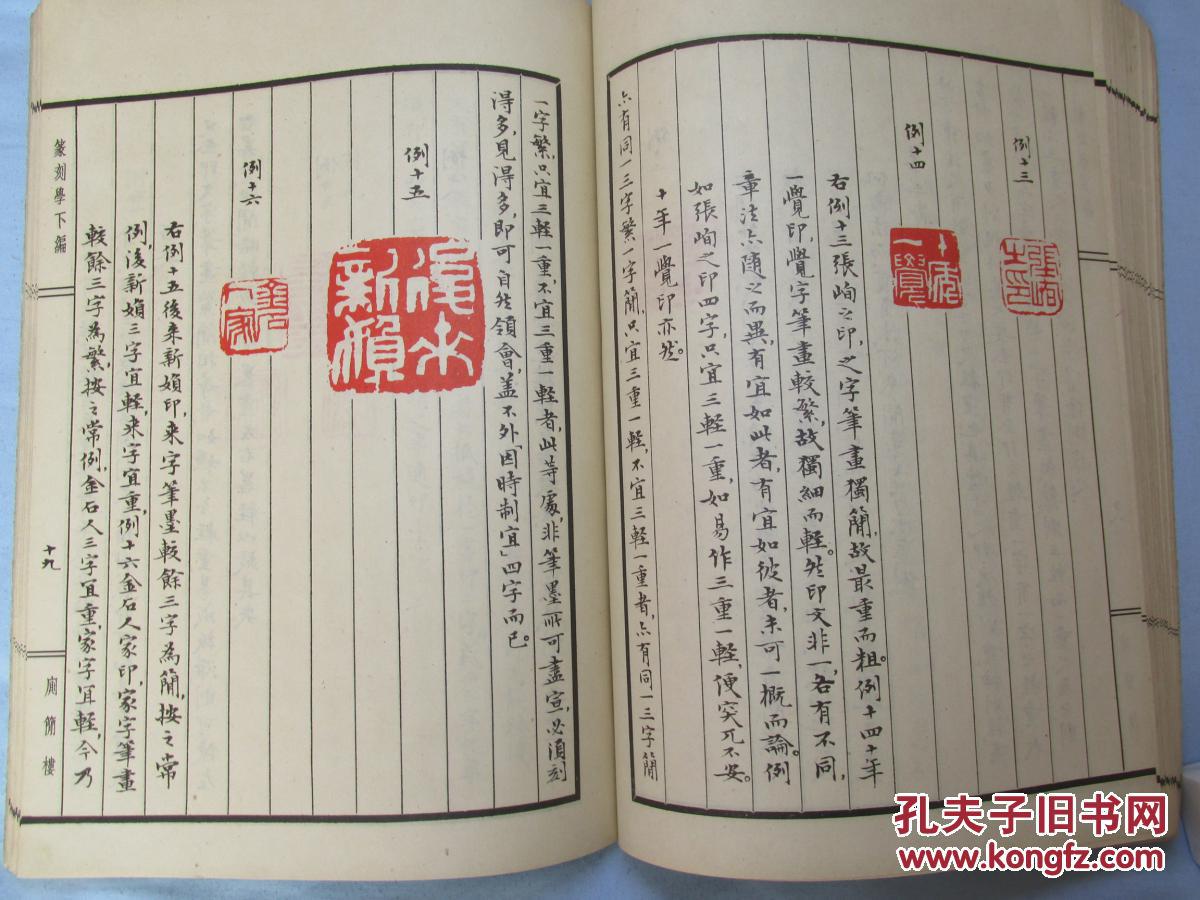 例十三
張峋之印
例十四
十年一覺
右例十三張峋之印,之字筆畫獨簡,故最重而粗。例十四十年
一覺印,覺字筆畫較繁,故獨細而輕。然印文非一,各有不同,
章法亦隨之而異,有宜如此者,有宜如彼者,未可一概而論。例
如張峋之印四字,只宜三輕一重,如易作三重一輕,便突兀不安。
十年一覺印亦然。
亦有同一三字繁一字簡,只宜三重一輕,不宜三輕一重者,亦有同一三字簡
一字繁只宜三輕一重,不宜三重一輕者,此等處,非筆墨所可盡宣,必須刻
得多,見得多,即可自然領會,蓋不外「因時制宜」四字而已。
例十五
後來新嬾
例十六
金石人家
右例十五後來新嬾印,来字筆墨較餘三字為簡,按之常
例,後新嬾三字宜輕,来字宜重,例十六金石人家印,家字筆畫
較餘三字為繁,按之常例,金石人三字宜重,家字宜輕,今乃
篆刻學下編
十九
廁簡樓
孔夫子旧书网
www.kongfz.com